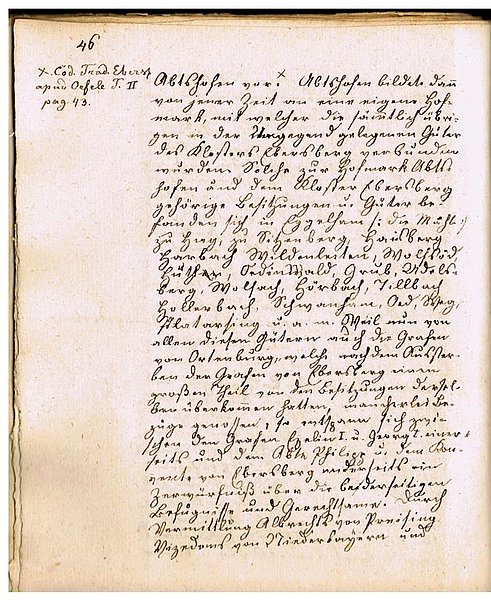 46
x. Cod. Trad. Ebersp.
apud Oefele T. II
pag. 43.
Abtshofen vor. x Abtshofen bildete dann
von jener Zeit an eine eigene Hof-
mark, mit welcher die sämmtlich übri-
gen in der Umgegend gelegenen Güter
des Klosters Ebersberg verbunden
wurden. Solche zur Hofmark Abts-
hofen und dem Kloster Ebersberg
gehörige Besitzungen u. Güter be-
fanden sich in Eggelham /: die Mühl :/
zu Hag, zu Sitzenberg, Hausberg
Harbach Wildenleiten, Wolfsöd,
Hütten, Oedenwald, Grub, Adels-
berg, Wolfach, Hörbach, Tillbach
Hollerbach, Schwanham, Oed, Weg,
u. a. m. Weil nun von
allen diesen Gütern auch die Grafen
von Ortenburg, welche nach dem Ausster-
ben der Grafen von Ebersberg einen
großen Theil von den Besitzungen dersel-
ben überkommen hatten, mancherlei Be-
züge genossen; so entspann sich zwi-
schen den Grafen Ezelin I. u. Georg I. einer-
seits und dem Abte Philipp u. dem Kon-
vente von Ebersberg anderseits ein
Zerwürfniß über die beiderseitigen
Befugnisse und Gerechtsame. Durch
Vermittlung Albrechts von Preising
Vizedoms von Niederbayern und